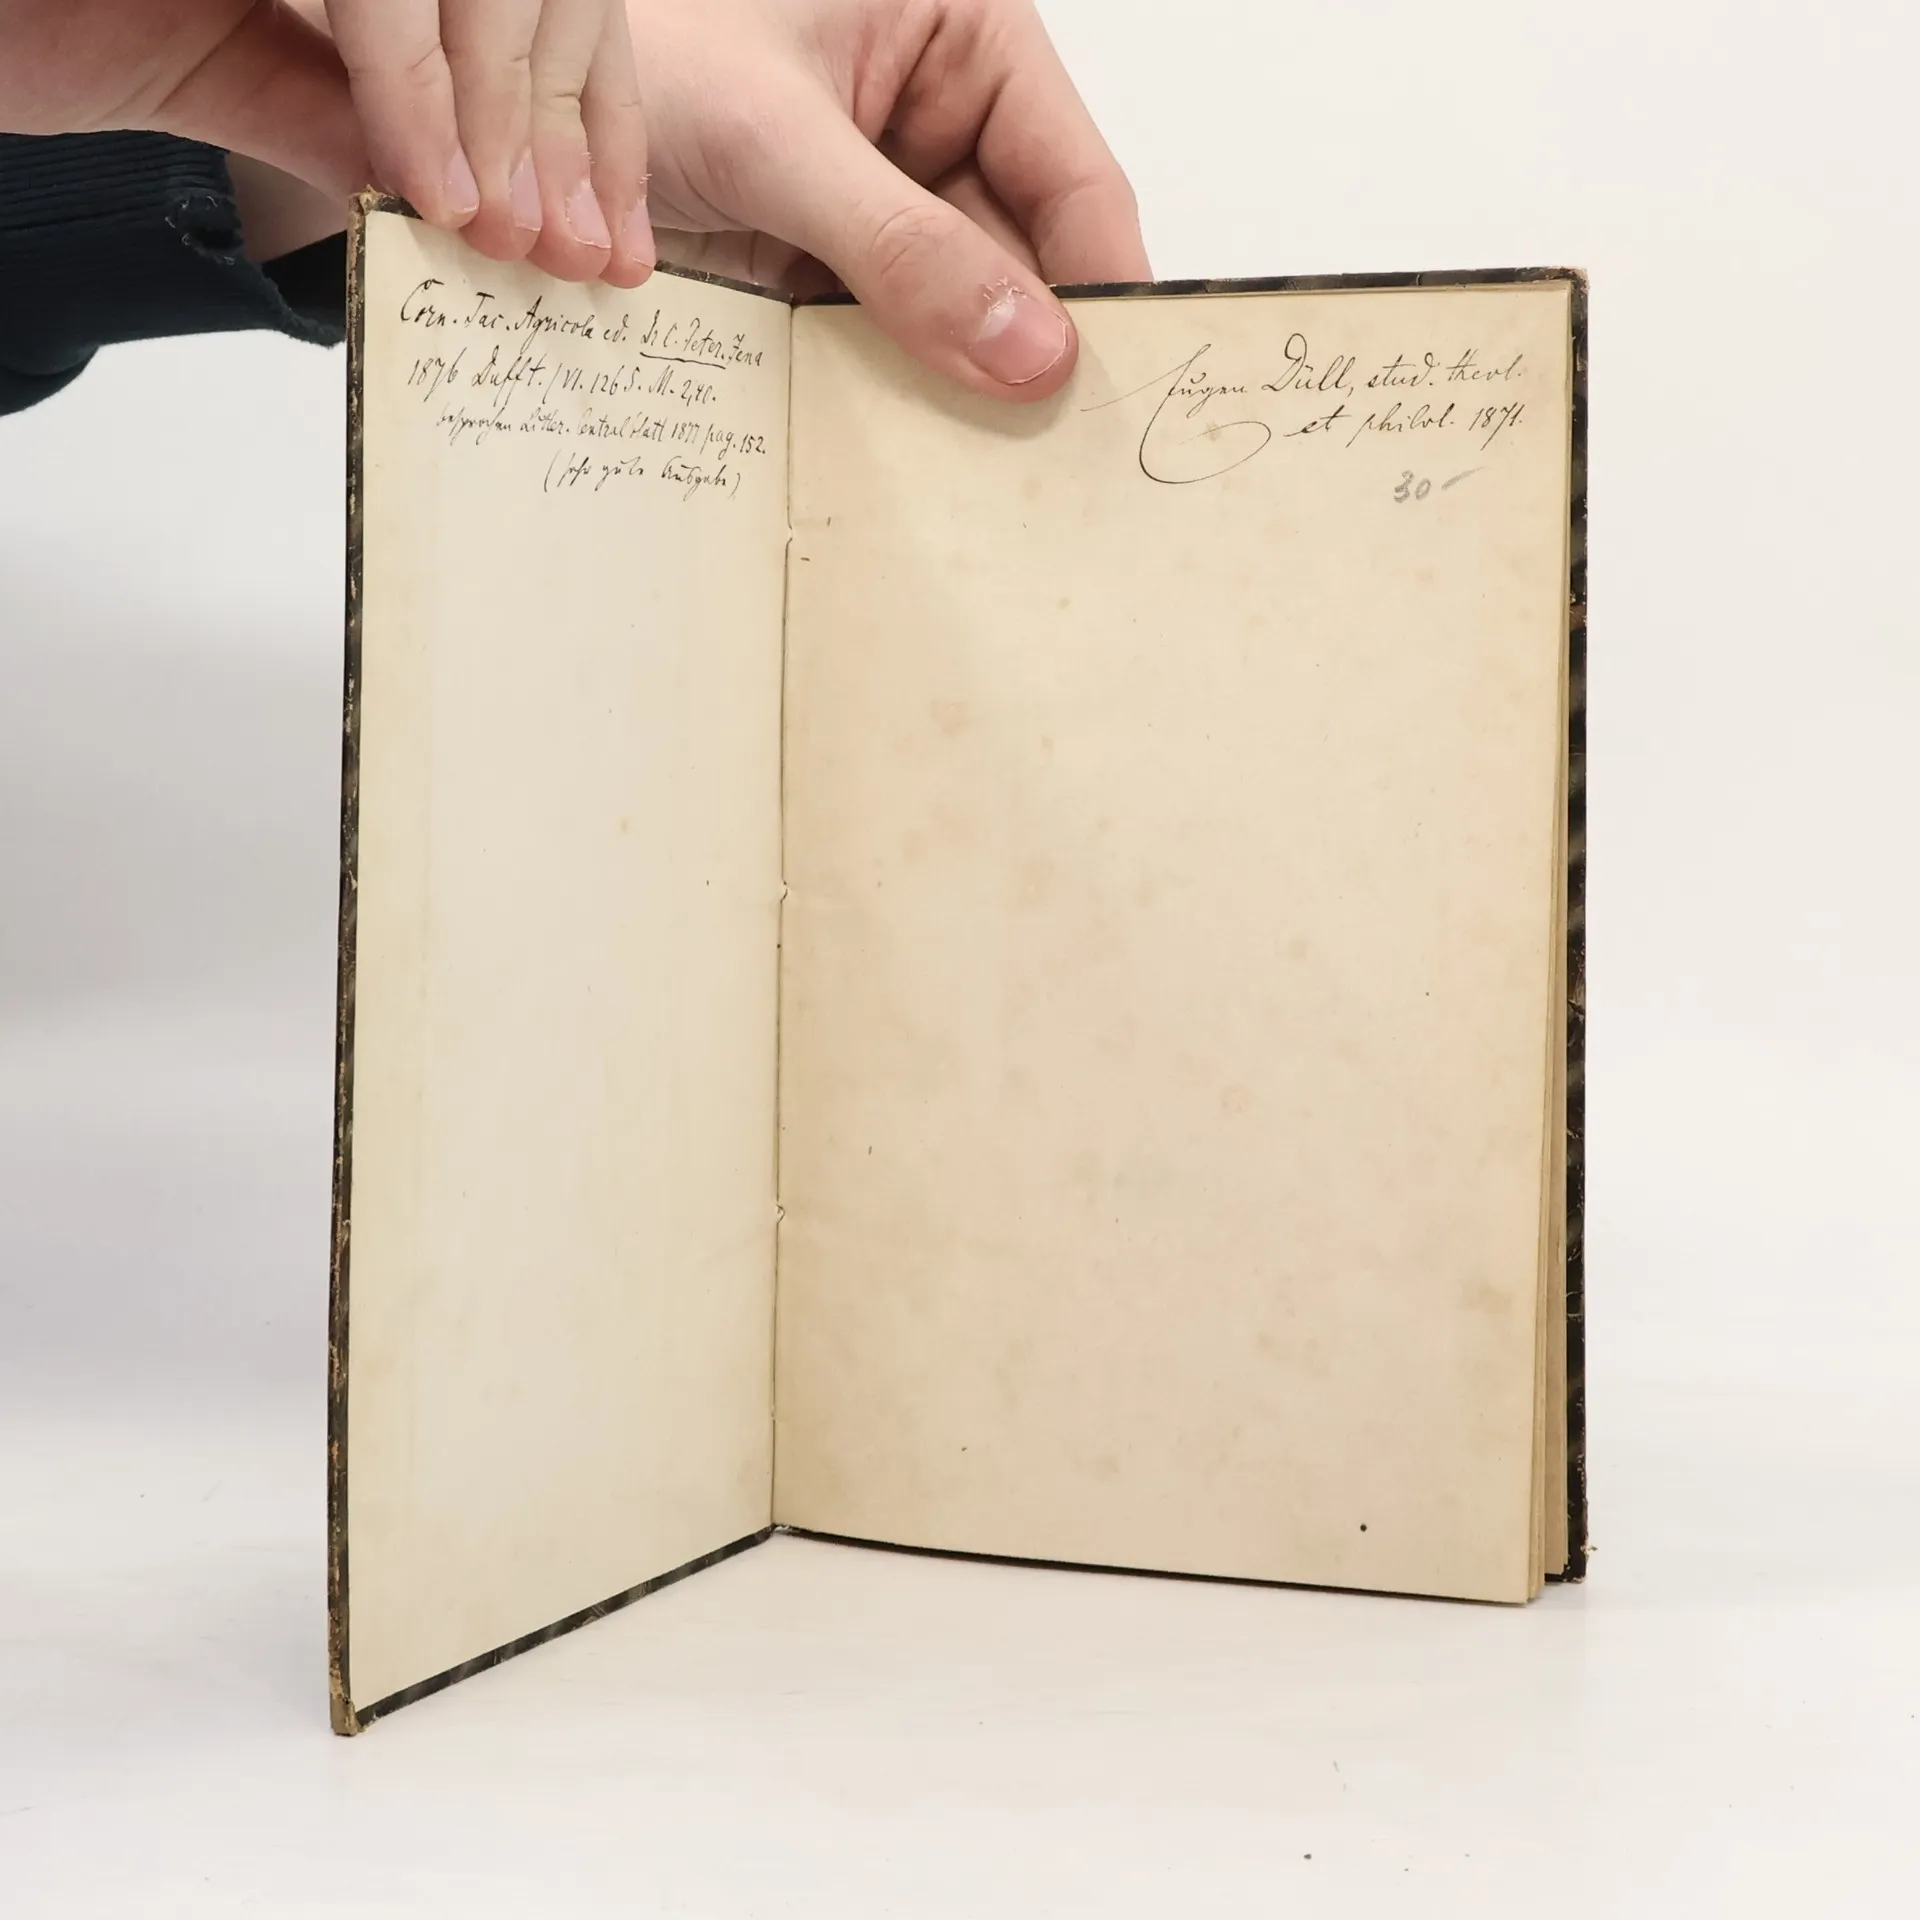 Corn. Tac. Agricola ed. Dr C. Peter. Jena
1876 Dufft. / VI. 126 S. M. 2,40.
besprochen Litter. Centralblatt 1877 pag. 152.
(sehr gute Ausgabe)
Eugen Düll, stud. theol.
et philol. 1871.
30 -